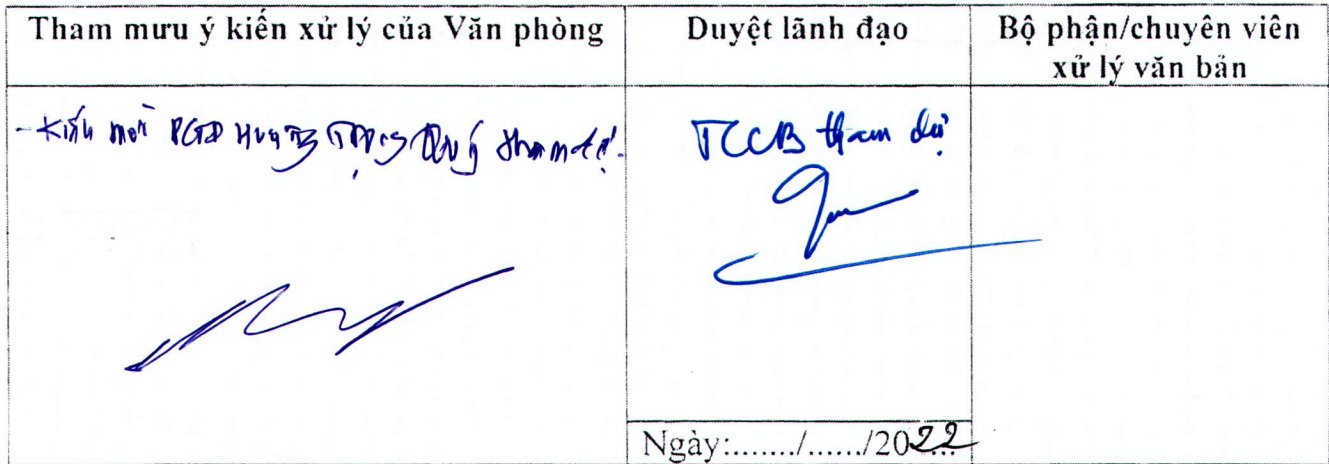 Tham mưu ý kiến xử lý của Văn phòng
Duyệt lãnh đạo
Bộ phận/chuyên viên
xử lý văn bản
- Kính mời PGĐ Trọng Quý tham dự.
TCCB tham dự
Ngày:......../....../2022...